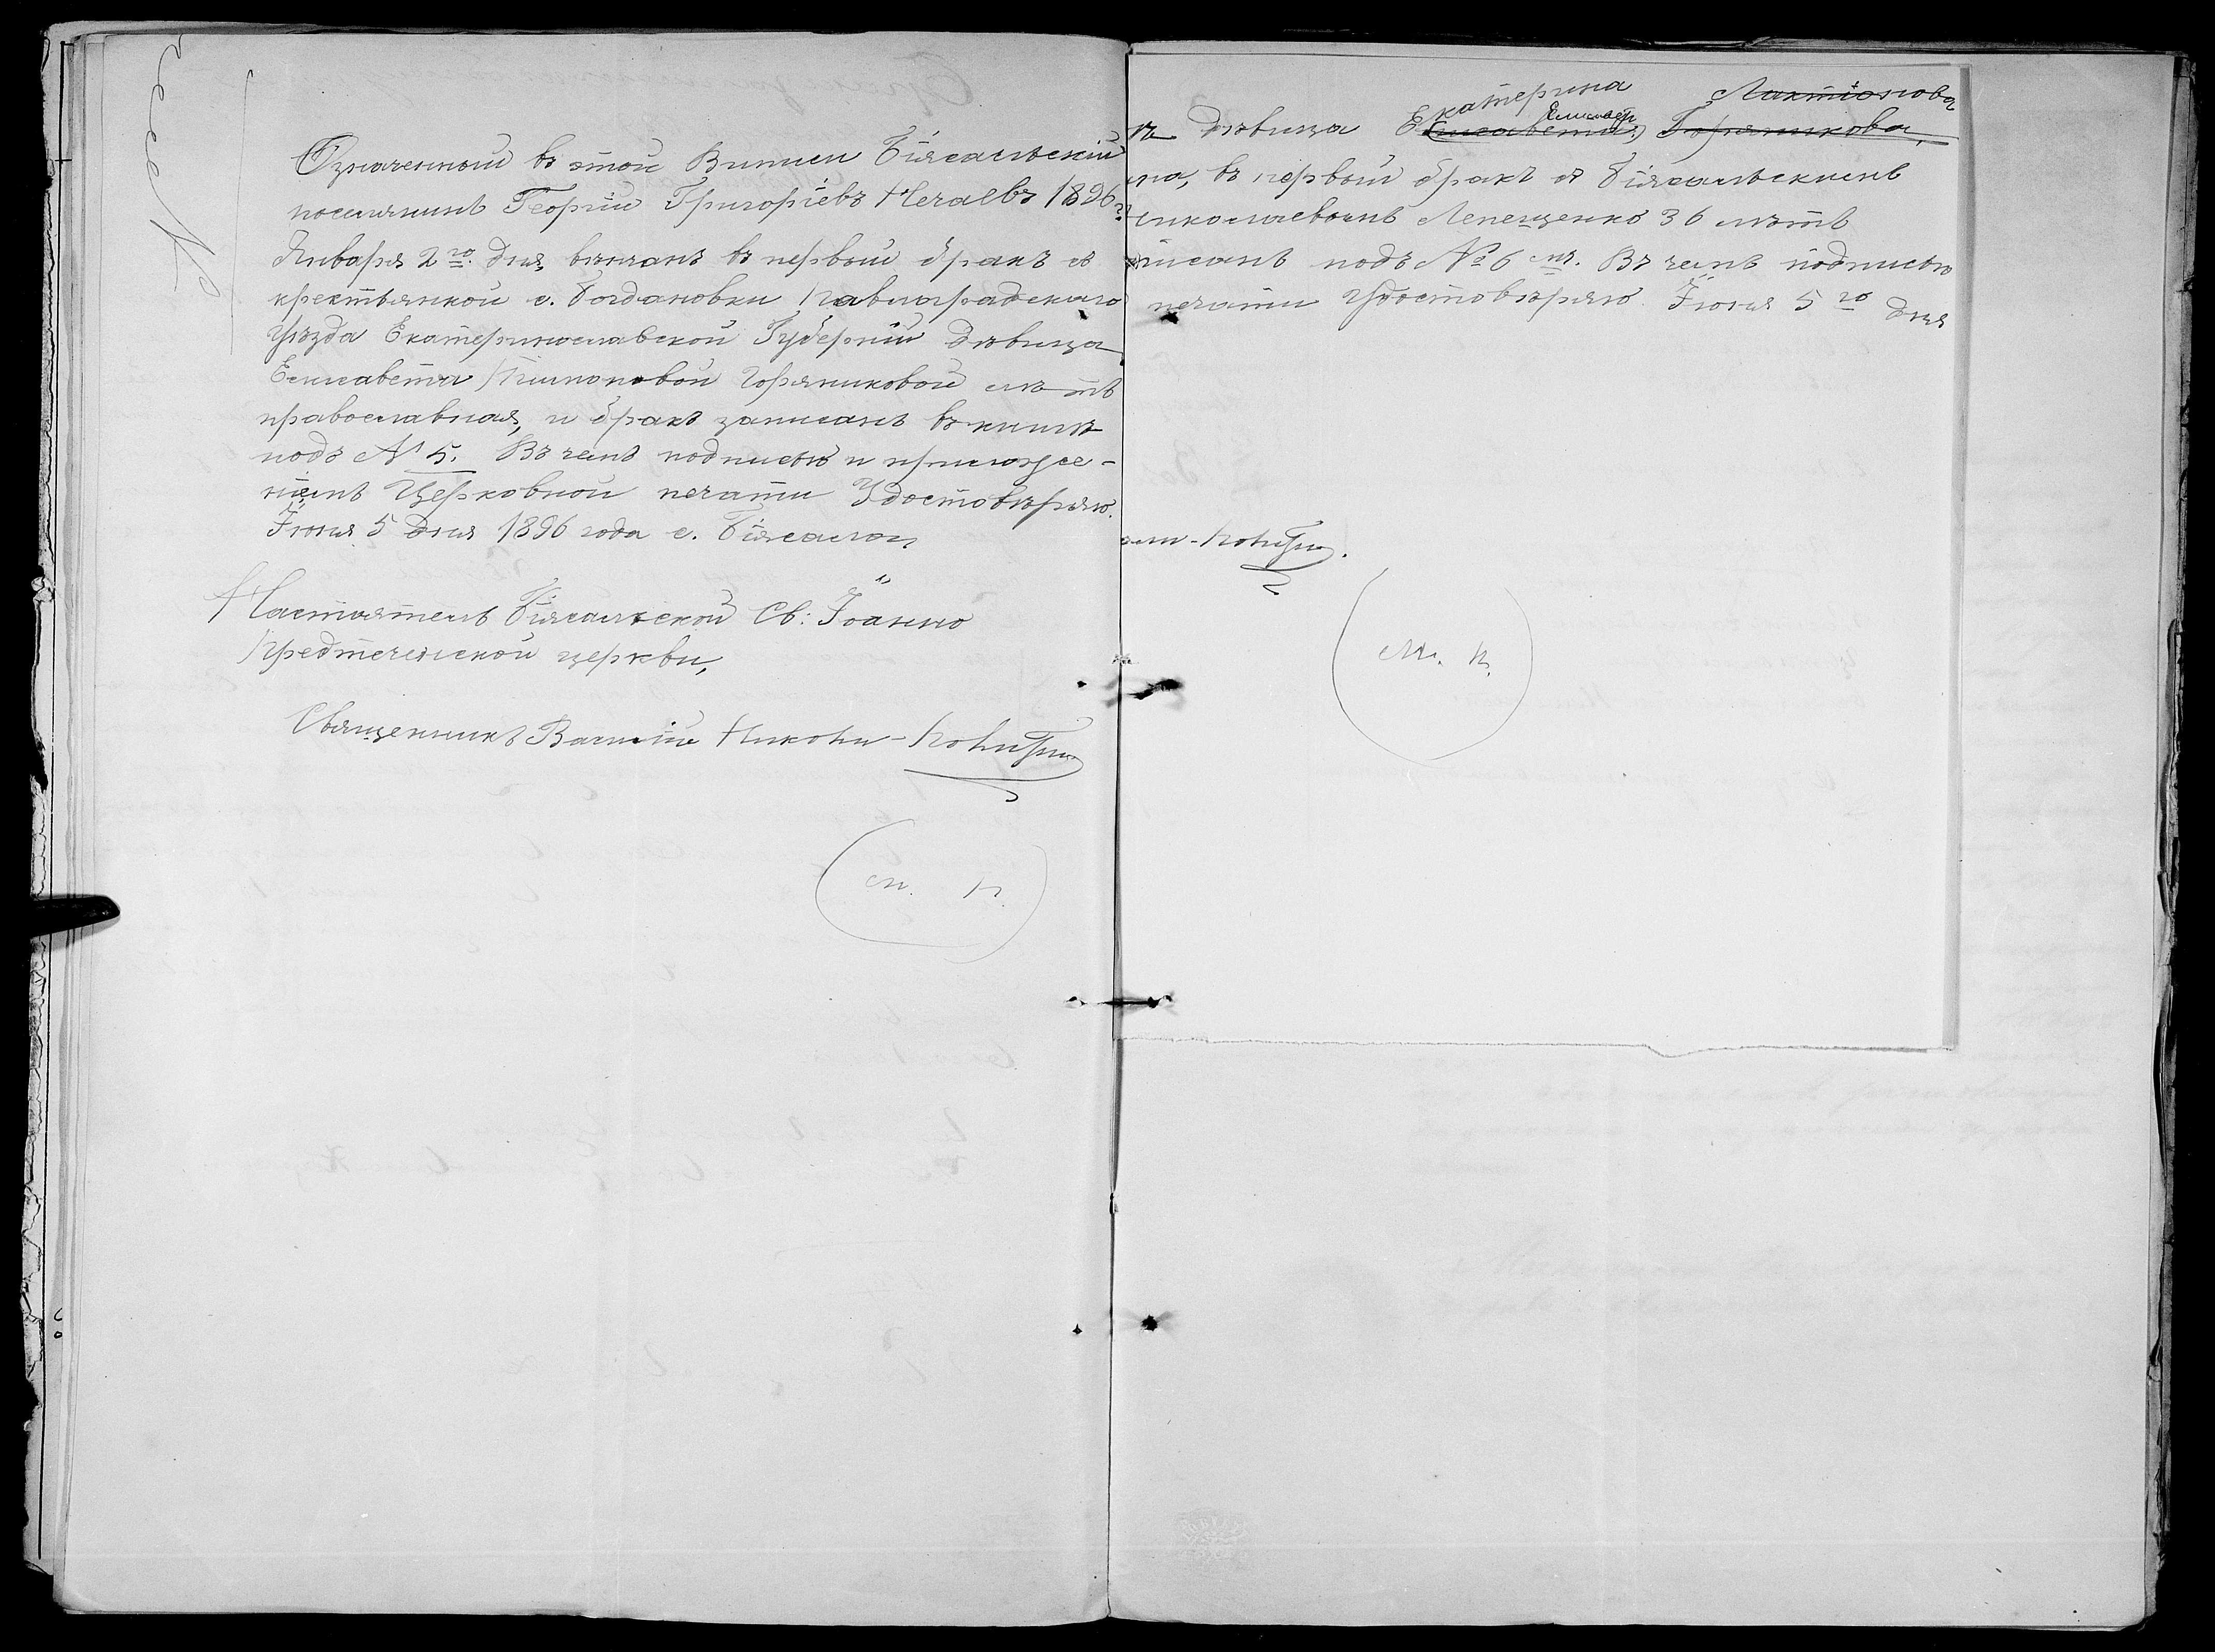 Означенный въ этой Выписи Біясальскій
поселянинъ Георгій Григоріевъ Нечаевъ 1896
Января 2го. дня, вѣнчанъ въ первый бракъ съ
крестьянкой с. Богдановки Павлоградскаго
уѣзда Екатеринославской Губерніи дѣвица
Елисавета Филиповой Горяниковой лѣтъ
православная, и бракъ записанъ въ книгѣ
подъ № 5. Въ чемъ подписью и приложе-
ніемъ Церковной печати Удостовѣряю.
Іюня 5 дня 1896 года с. Біясала
Настоятель Біясальской Св: Іоанно
Предтеченской церкви,
Священникъ Василій
М. П.
Екатерина Лактіонова
дѣвица Елисавета Горяникова,
въ первый бракъ съ Біясальскимъ
Николаевымъ Лепещенко 36 лѣтъ
подъ № 6 мъ. Въ чемъ подписью
печати Удостовѣряю. Іюня 5 го дня
М. П.